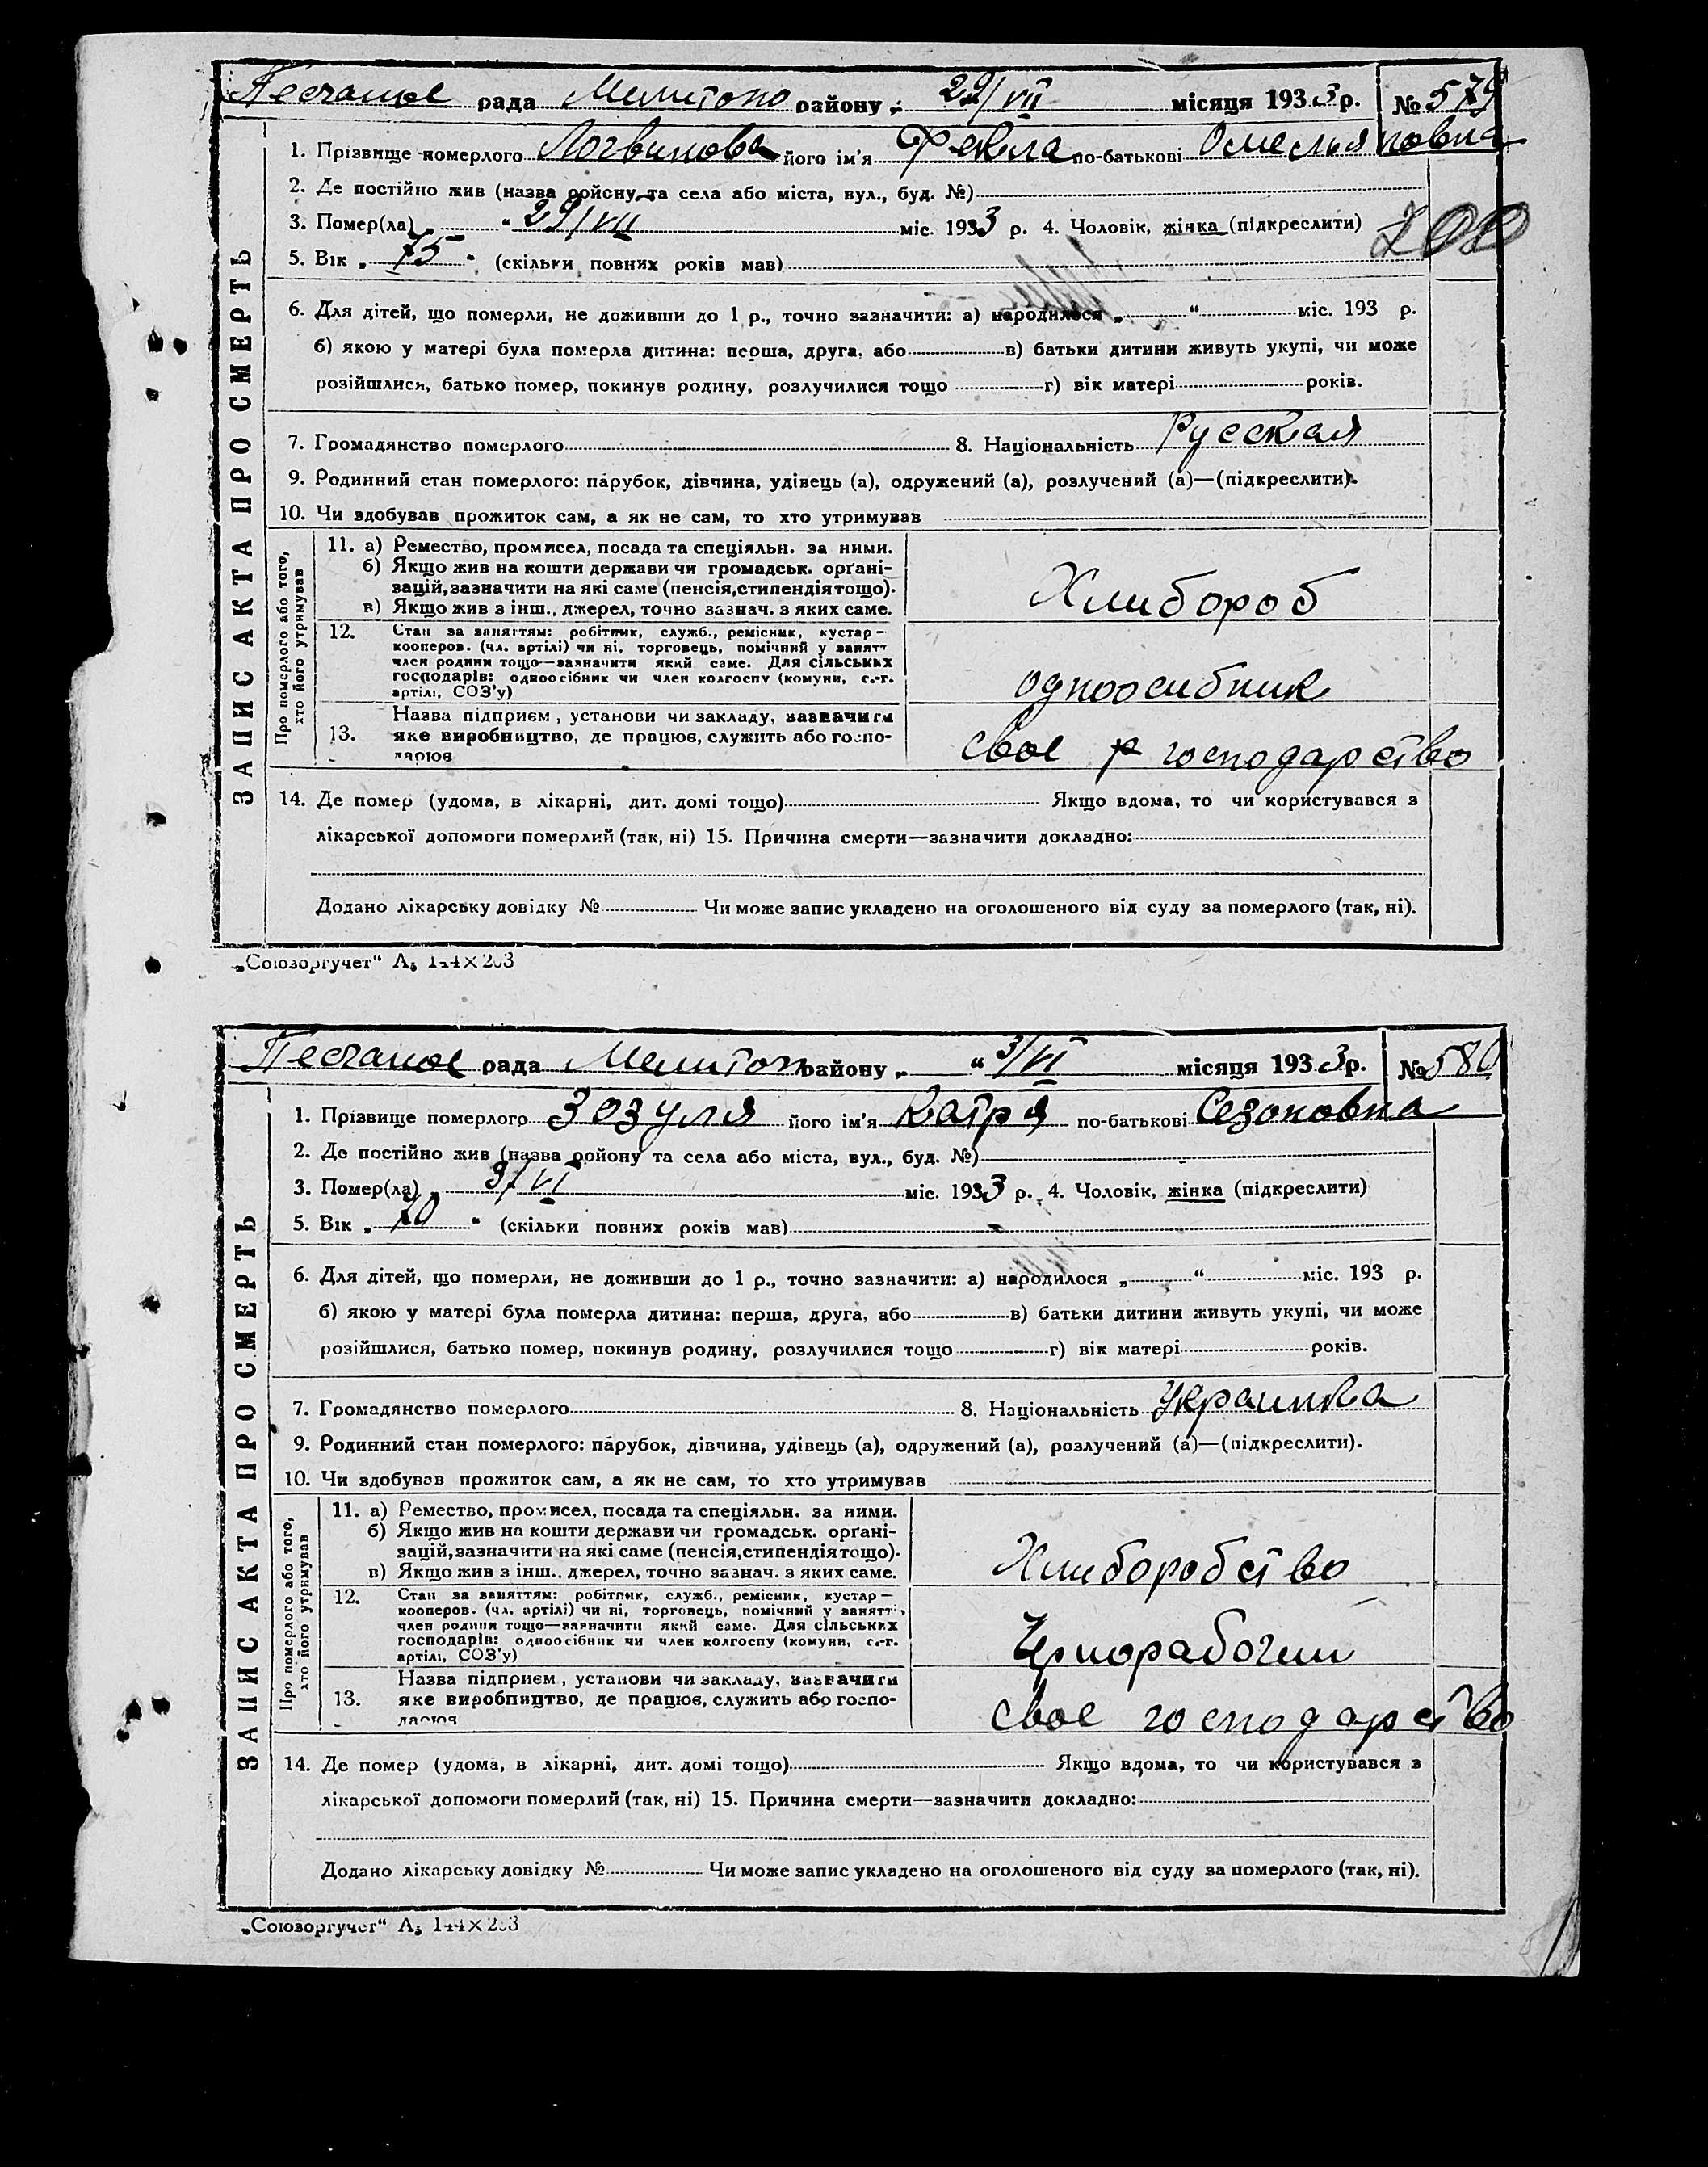 Песчаное рада Мелитопо району „ 29/VII місяця 1933 р. № 579
1. Прізвище померлого Логвинова його ім'я Фекла по-батькові Омельяновна
2. Де постійно жив (назва району та села або міста, вул., буд. №)
3. Помер(ла) „ “ 29/VII міс. 1933 р. 4. Чоловік, жінка (підкреслити) 200
5. Вік „ 75 “ (скільки повних років мав)
6. Для дітей, що померли, не доживши до 1 р., точно зазначити: а) народилося „ “ міс. 193 р.
б) якою у матері була померла дитина: перша, друга, або в) батьки дитини живуть укупі, чи може
розійшлися, батько помер, покинув родину, розлучилися тощо г) вік матері років.
7. Громадянство померлого 8. Національність Русская
9. Родинний стан померлого: парубок, дівчина, удівець (а), одружений (а), розлучений (а)—(підкреслити).
10. Чи здобував прожиток сам, а як не сам, то хто утримував
ЗАПИС АКТА ПРО СМЕРТЬ
Про померлого або того,
хто його утримував
11. а) Ремество, промисел, посада та спеціяльн. за ними.
б) Якщо жив на кошти держави чи громадськ. орґані-
зацій, зазначити на які саме (пенсія, стипендія тощо).
в) Якщо жив з інш., джерел, точно зазнач. з яких саме.
Хлибороб
12. Стан за заняттям: робітник, служб., ремісник, кустар—
кооперов. (чл. артілі) чи ні, торговець, помічний у занятт
член родини тощо—зазначити який саме. Для сільських
господарів: одноосібник чи член колгоспу (комуни, с.-г.
артілі, СОЗ'у)
одноосибник
13. Назва підприєм, установи чи закладу, зазначити
яке виробництво, де працює, служить або госпо-
дарює
свое р господарство
14. Де помер (удома, в лікарні, дит. домі тощо) Якщо вдома, то чи користувався з
лікарської допомоги померлий (так, ні) 15. Причина смерти—зазначити докладно:
Додано лікарську довідку № Чи може запис укладено на оголошеного від суду за померлого (так, ні).
„Союзоргучет“ А5 144×203
Песчаное рада Мелитоп району „ “ 3/VI місяця 1933 р. № 580
1. Прізвище померлого Зозуля його ім'я Катря по-батькові Сезоновна
2. Де постійно жив (назва району та села або міста, вул., буд. №)
3. Помер(ла) „ 3/VI міс. 1933 р. 4. Чоловік, жінка (підкреслити)
5. Вік „ 70 “ (скільки повних років мав)
6. Для дітей, що померли, не доживши до 1 р., точно зазначити: а) народилося „ “ міс. 193 р.
б) якою у матері була померла дитина: перша, друга, або в) батьки дитини живуть укупі, чи може
розійшлися, батько помер, покинув родину, розлучилися тощо г) вік матері років.
7. Громадянство померлого 8. Національність Украинка
9. Родинний стан померлого: парубок, дівчина, удівець (а), одружений (а), розлучений (а)—(підкреслити).
10. Чи здобував прожиток сам, а як не сам, то хто утримував
ЗАПИС АКТА ПРО СМЕРТЬ
Про померлого або того,
хто його утримував
11. а) Ремество, промисел, посада та спеціяльн. за ними.
б) Якщо жив на кошти держави чи громадськ. орґані-
зацій, зазначити на які саме (пенсія, стипендія тощо).
в) Якщо жив з інш.. джерел, точно зазнач. з яких саме.
Хлиборобство
12. Стан за заняттям: робітник, служб., ремісник, кустар—
кооперов. (чл. артілі) чи ні, торговець, помічний у занятт
член родини тощо—зазначити який саме. Для сільських
господарів: одноосібник чи член колгоспу (комуни, с.-г.
артілі, СОЗ'у)
Чернорабочий
13. Назва підприєм, установи чи закладу, зазначити
яке виробництво, де працює, служить або госпо-
дарює
свое господарство
14. Де помер (удома, в лікарні, дит. домі тощо) Якщо вдома, то чи користувався з
лікарської допомоги померлий (так, ні) 15. Причина смерти—зазначити докладно:
Додано лікарську довідку № Чи може запис укладено на оголошеного від суду за померлого (так, ні).
„Союзоргучет“ А5 144×203